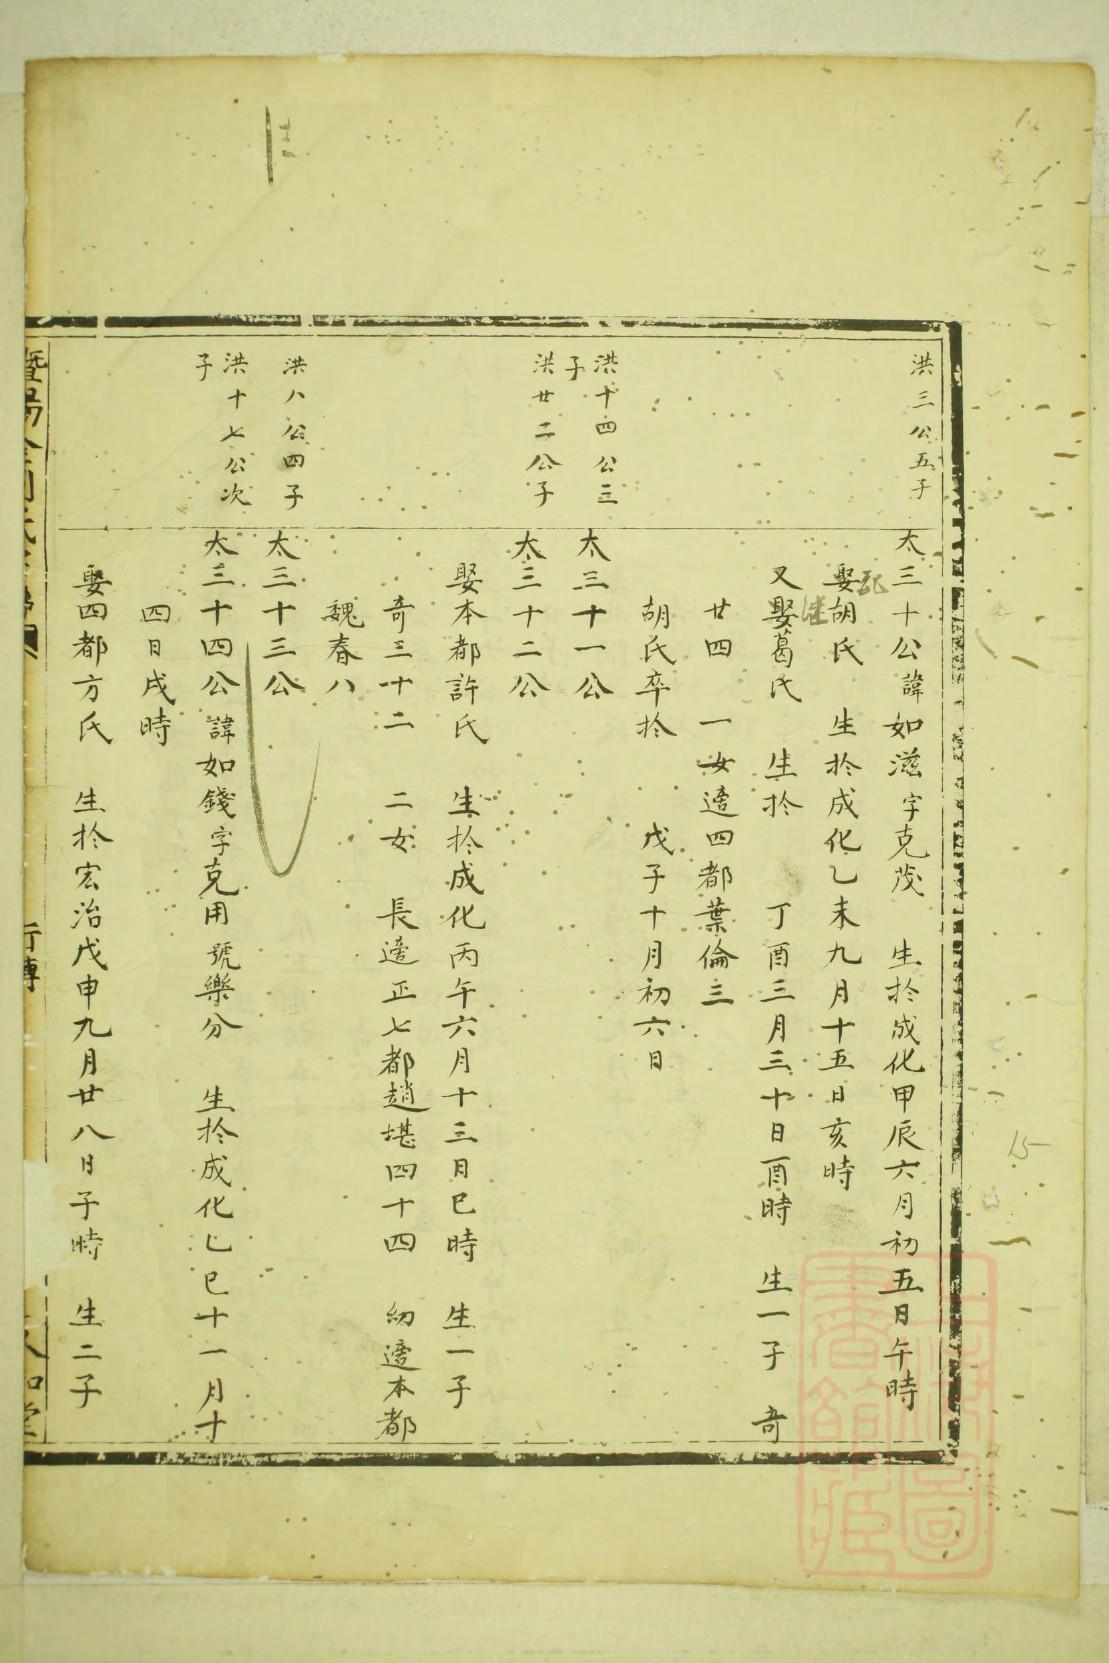 洪三公五子
太三十公諱如滋字克茂 生於成化甲辰六月初五日午時
配
娶胡氏 生於成化乙未九月十五日亥時
継
又娶葛氏 生於 丁酉三月三十日酉時 生一子 奇
廿四 一女適四都葉倫三
胡氏卒於 戊子十月初六日
洪十四公三
子
太三十一公
洪廿二公子
太三十二公
娶本都許氏 生於成化丙午六月十三日巳時 生一子
奇三十二 二女 長適正七都趙堪四十四 幼適本都
魏春八
洪八公四子
太三十三公
洪十七公次
子
太三十四公 諱如錢字克用號樂分 生於成化乙巳十一月十
四日戌時
娶四都方氏 生於宏治戊申九月廿八日子時 生二子
行傳
15